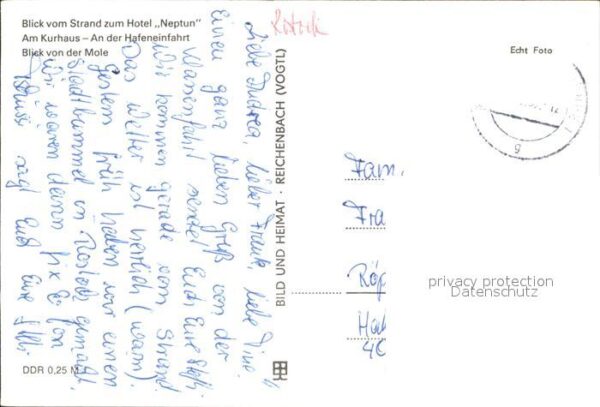 Blick vom Strand zum Hotel „Neptun"
Am Kurhaus – An der Hafeneinfahrt
Blick von der Mole
Echt Foto
Liebe Andrea, lieber Frank, liebe
einen ganz lieben Gruß von der
Klassenfahrt sendet Euch Eure
Wir kommen gerade vom Strand
Das Wetter ist herrlich (warm).
Gestern früh haben wir einen
Stadtbummel in Rostock gemacht.
Wir waren dann fix &
Tschüssi sagt Euch Eure
BILD UND HEIMAT · REICHENBACH (VOGTL)
Fam.
Fra
Röp
privacy protection
Datenschutz
DDR 0,25 M